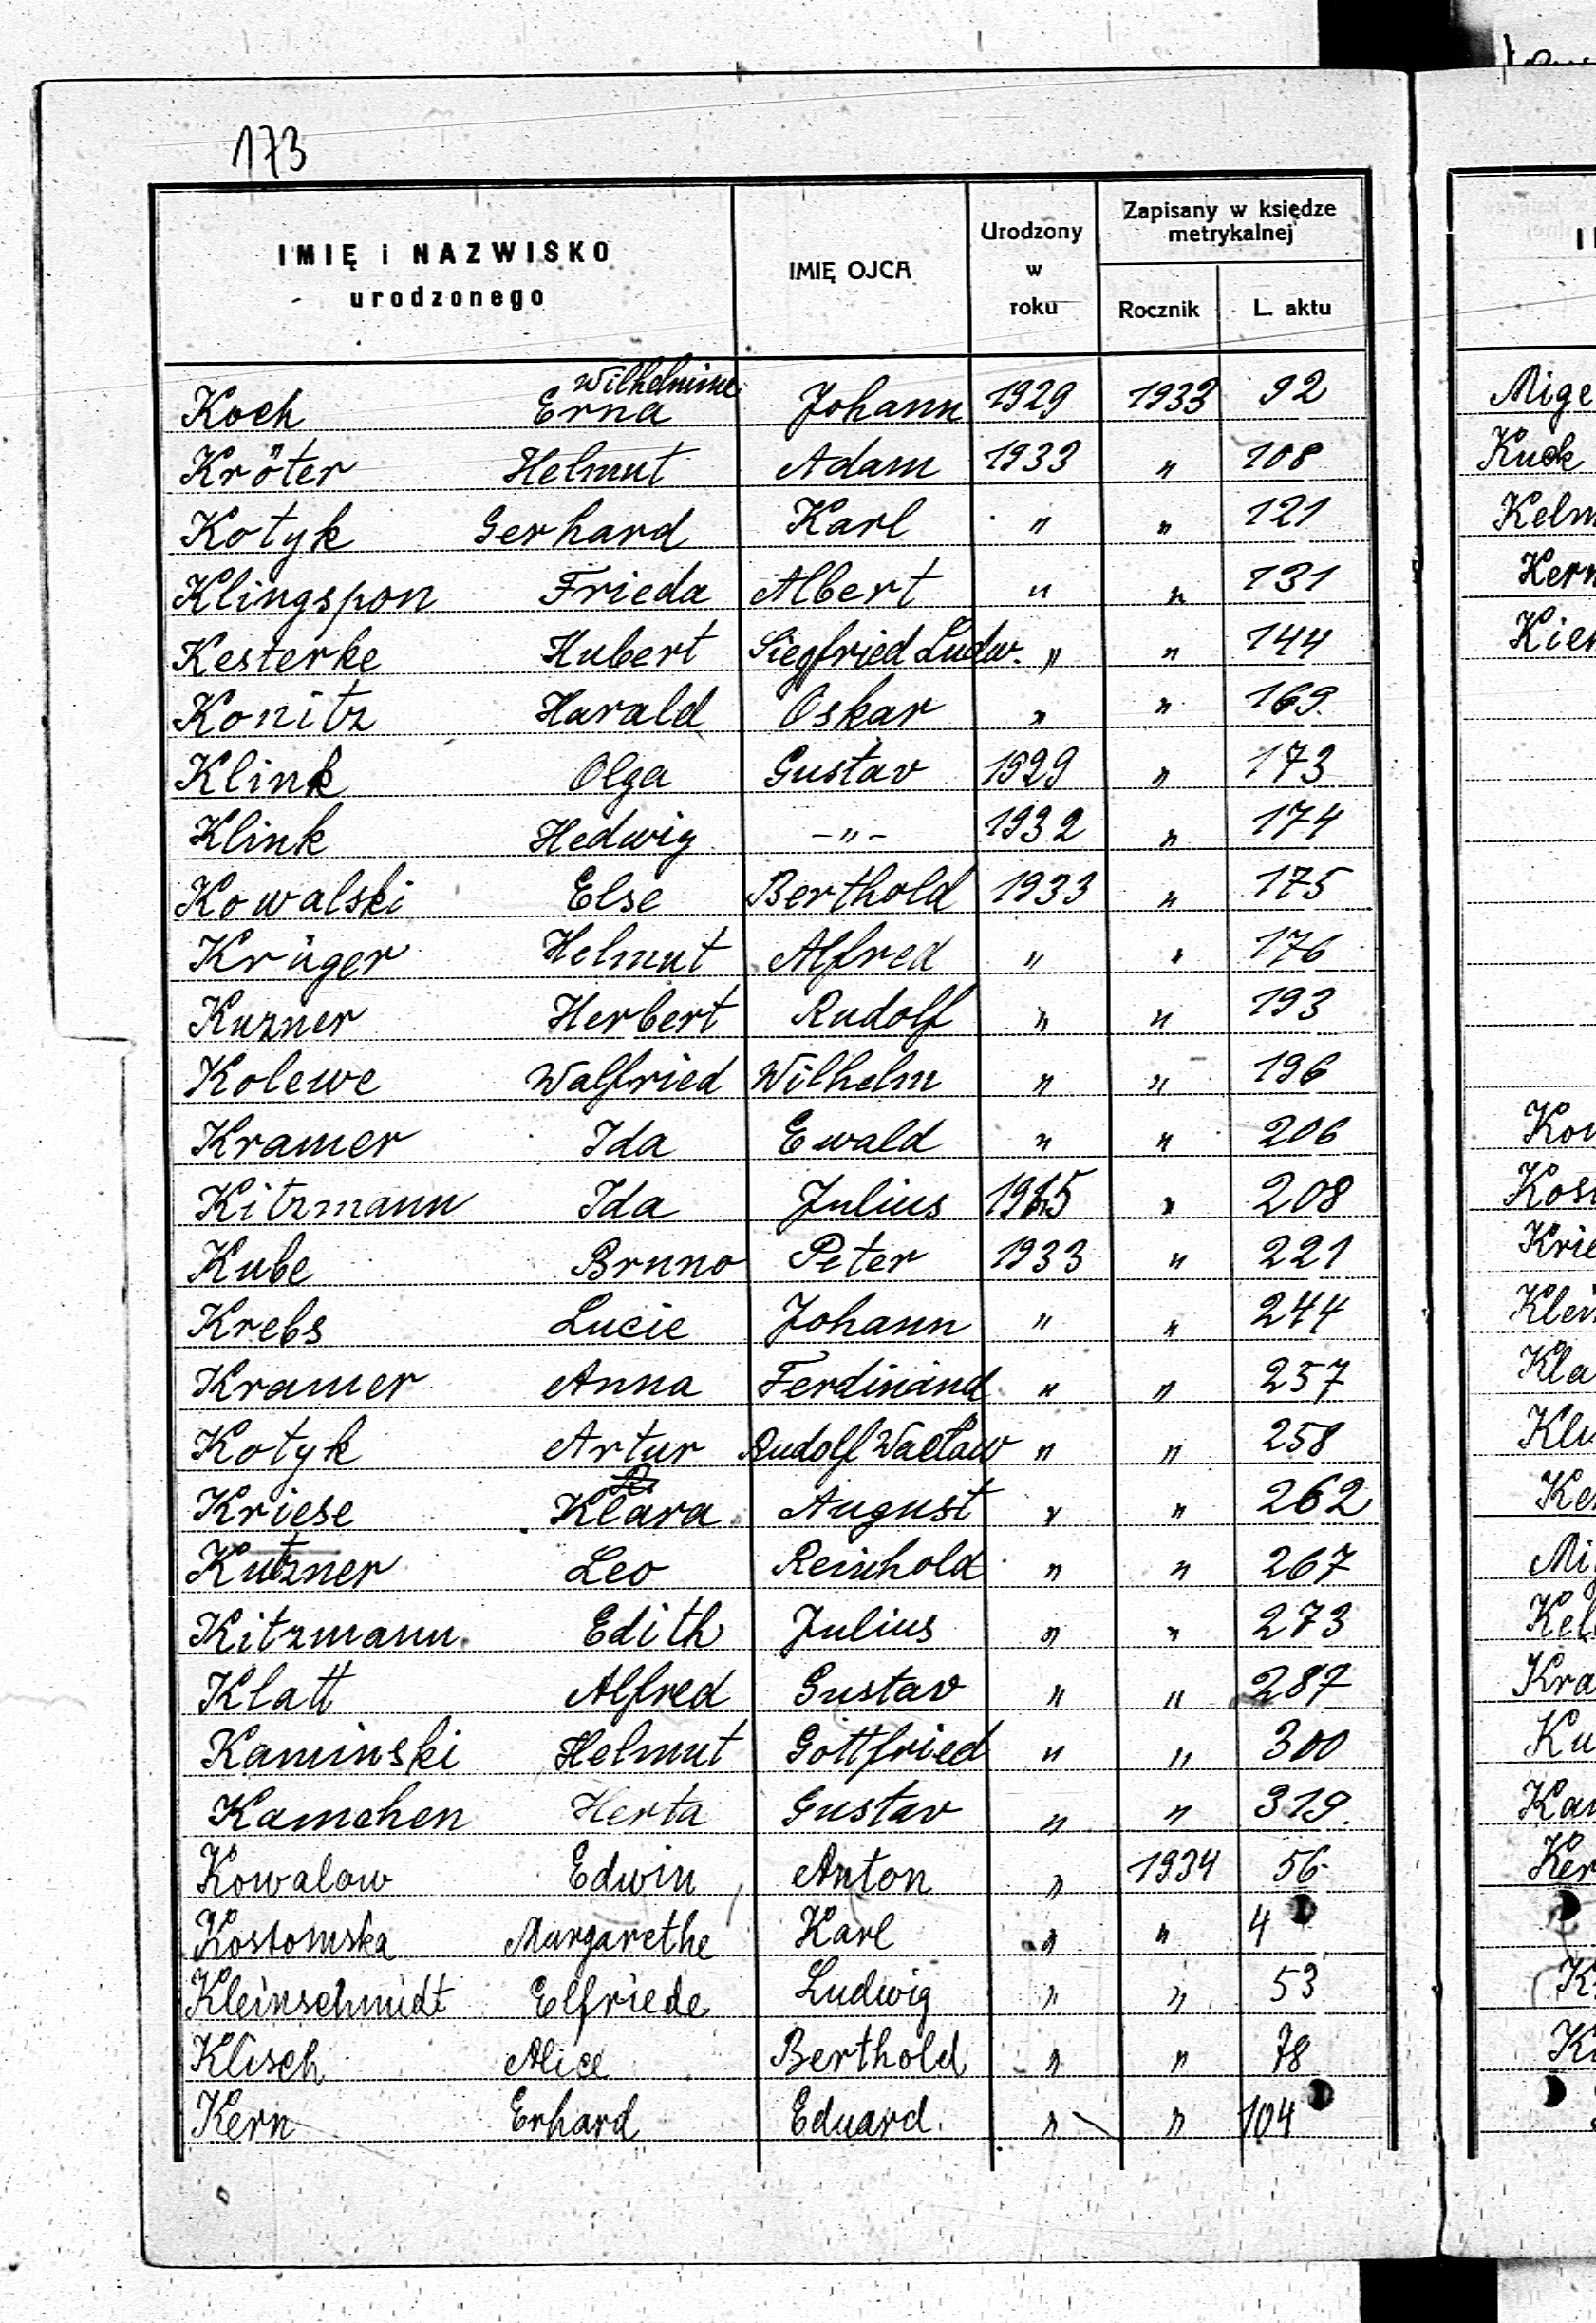 173
IMIĘ i NAZWISKO
urodzonego
IMIĘ OJCA
Urodzony
w
roku
Zapisany w księdze
metrykalnej
Rocznik
L. aktu
Wilhelmine
Koch Erna Johann 1929 1933 92
Kröter Helmut Adam 1933 " 108
Kotyk Gerhard Karl " " 121
Klingspon Frieda Albert " " 131
Kesterke Hubert Siegfried Ludw. " " 144
Konitz Harald Oskar " " 169.
Klink Olga Gustav 1929 " 173
Klink Hedwig -"- 1932 " 174
Kowalski Else Berthold 1933 " 175
Krüger Helmut Alfred " " 176
Kuzner Herbert Rudolf " " 193
Kolewe Walfried Wilhelm " " 196
Kramer Ida Ewald " " 206
Kitzmann Ida Julius " 208
Kube Bruno Peter 1933 " 221
Krebs Lucie Johann " " 244
Kramer Anna Ferdinand " " 257
Kotyk Artur Rudolf Wacław " " 258
Kriese Klara August " " 262
Kutzner Leo Reinhold " " 267
Kitzmann Edith Julius " " 273
Klatt Alfred Gustav " " 287
Kaminski Helmut Gottfried " " 300
Kamchen Herta Gustav " " 319.
Kowalow Edwin Anton " 1934 56
Kostomska Margarethe Karl " " 4
Kleinschmidt Elfriede Ludwig " " 53
Klisch Alice Berthold " " 78
Kern Erhard Eduard. " " 104
Mige
Kuck
Kelm
Kern